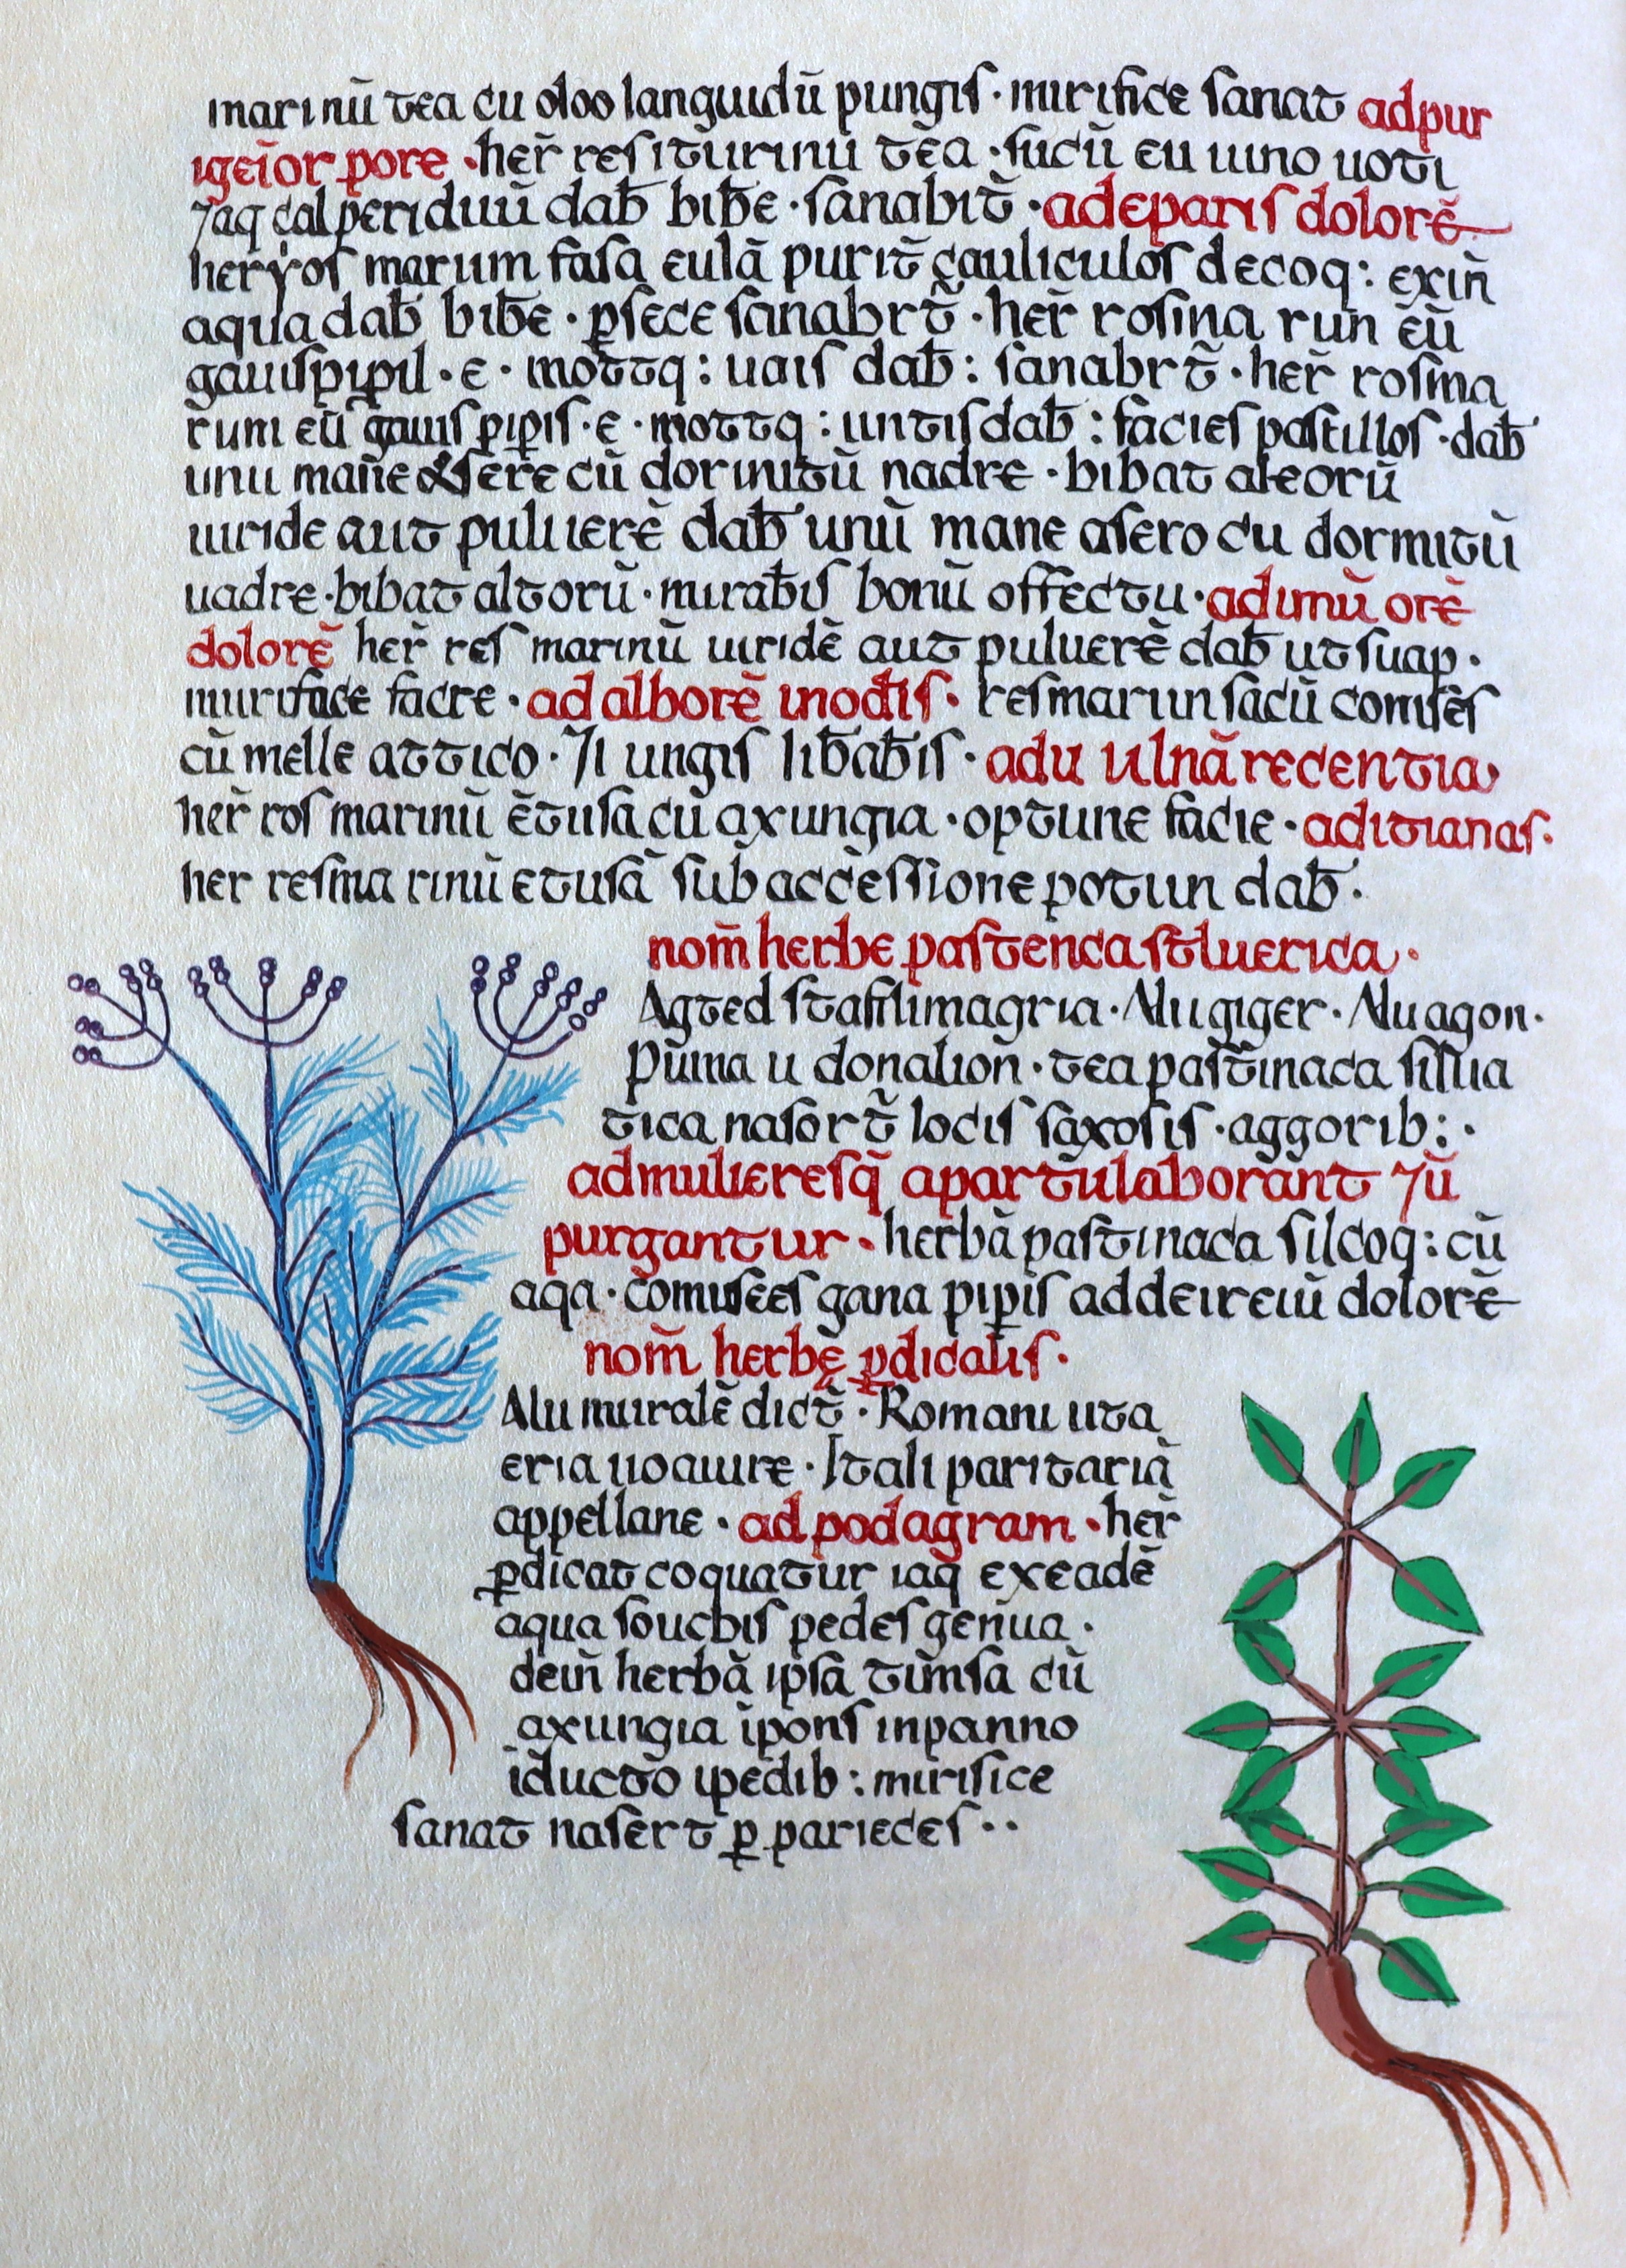 marinū tea cu oloo languidū pungis · mirifice sanat adpur
igeīor pore · her̄ resitūrinu tēa · sucū eu uino uoti
⁊aq cal periduū dab̄ bibe · sanabit̄ · adeparis dolorē
heryos marum fasa eulā purit̄ cauliculos decoq: exin̄
aqua dab̄ bibe · psece sanabrt̄ · her̄ rosina run eū
gauispipil · e · mottq: uais dab̄: sanabrt̄ · her̄ rosina
rum eū gauis pipis · e · mottq: untis dab̄: facies pastillos · dab̄
unu mane & sere cū dormitū nadre · bibat aleorū
uiride aut puluerē dab̄ unū mane asero cu dormitū
uadre · bibat altorū · mirab̄is bonū offectu · adimū orē
dolorē her̄ res marinū uiridē aut puluerē dab̄ ut suap ·
murifice facre · ad alborē inodis · resmarun sacū comisēs
cū melle attico · ⁊i ungis lib̄ab̄is · adu ulnā recentia
her̄ ros marinū ētusa cū axungia · optune facie · aditianas ·
her resma rinū etusā sub accessione potun dab̄ ·
nom̄ herbe pastenca stluerica ·
Agted staflimagria · Alu giger · Alu agon ·
Puma u donalion̄ · tea pastinaca silua
tica nasort̄ locis saxosis · aggorib: ·
admulieresq̄ apartūlaborant ⁊ū
purgantur · herbā pastinaca silcoq: cū
aqa · comisees gana pipis addeireiū dolorē
nom̄ herbę p̱dicalis ·
Alu muralē dict̄ · Romani uta
eria uoauire · Itali paritariā
appellane · ad podagram · her̄
p̱dicat coquatur iaq̄ exeadē
aqua soucbis pedes gen̄ua ·
dein̄ herbā ipsā timsa cū
axungia ipons inpanno
iducto ipedib: mirisice
sanat nasert p̱ parieces ··